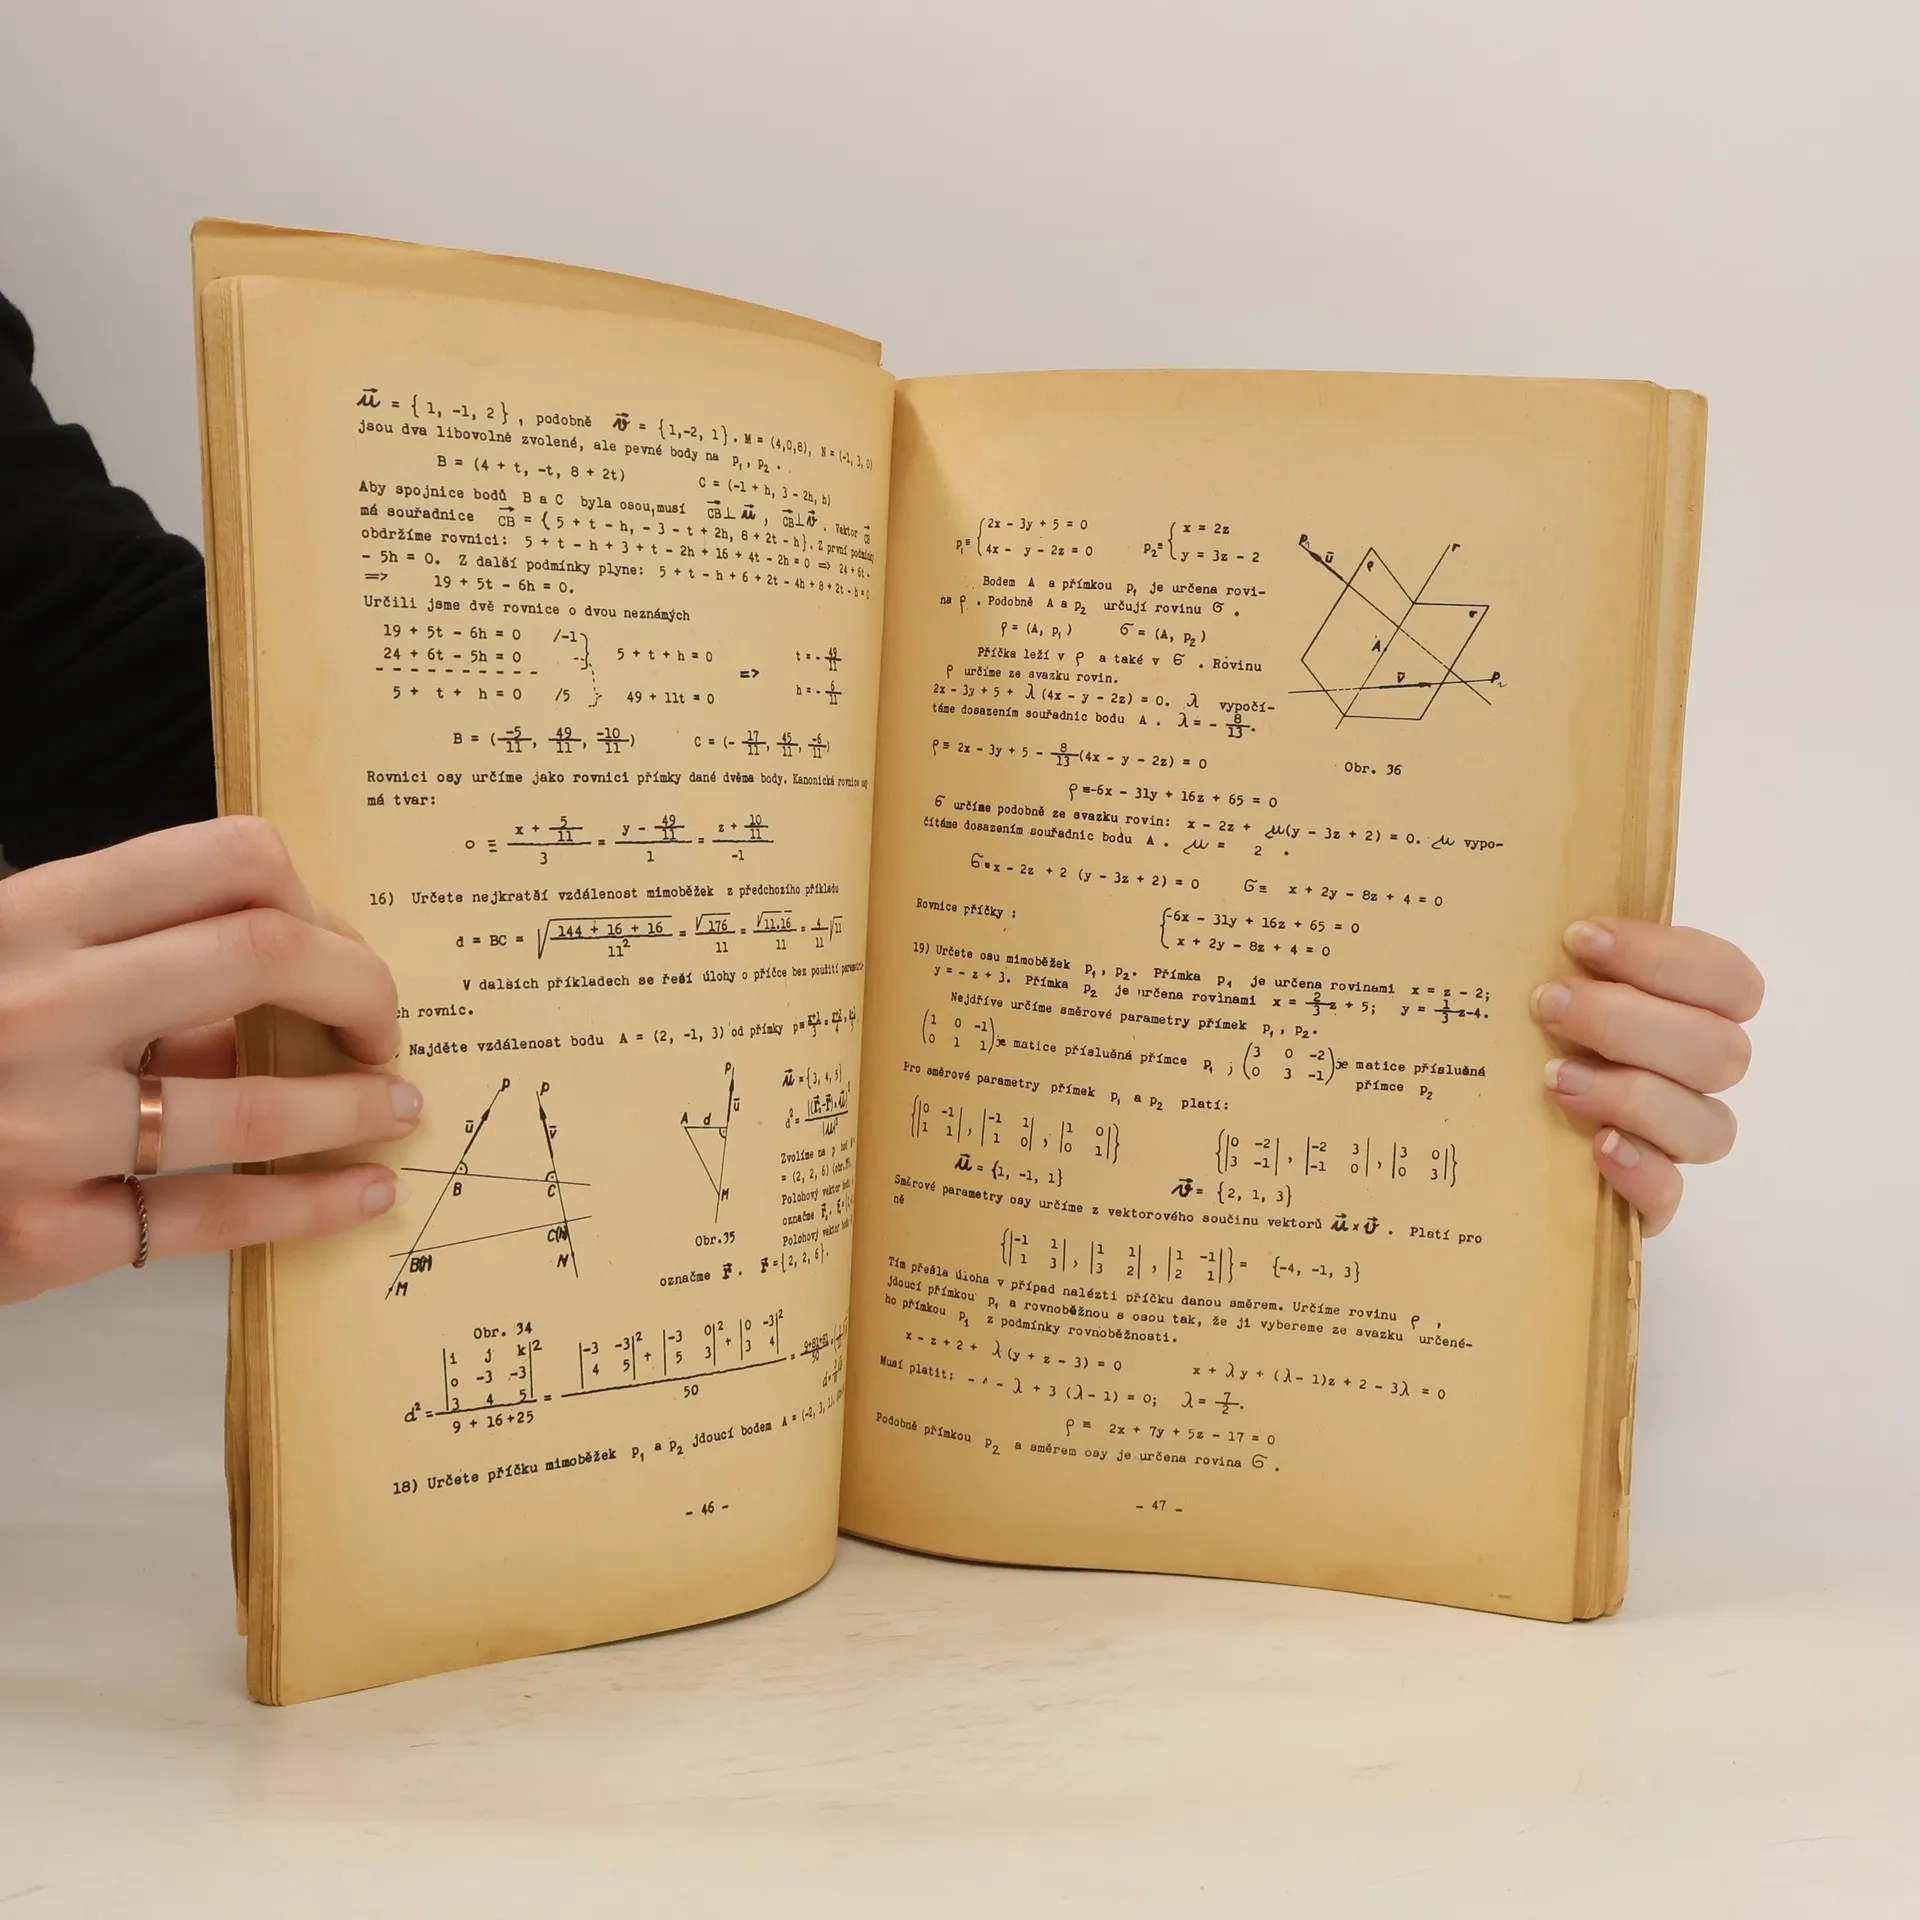 u⃗ = { 1, -1, 2 } , podobně v⃗ = {1,-2, 1}. M = (4,0,8), N = (-1, 3, 0)
jsou dva libovolně zvolené, ale pevné body na p₁, p₂ .
B = (4 + t, -t, 8 + 2t) C = (-1 + h, 3 - 2h, h)
Aby spojnice bodů B a C byla osou,musí CB⃗ ⊥ u⃗ , CB⃗ ⊥ v⃗ . Vektor CB⃗
má souřadnice CB⃗ = { 5 + t - h, - 3 - t + 2h, 8 + 2t - h}. Z první podmínky
obdržíme rovnici: 5 + t - h + 3 + t - 2h + 16 + 4t - 2h = 0 => 24 + 6t -
- 5h = 0. Z další podmínky plyne: 5 + t - h + 6 + 2t - 4h + 8 + 2t - h = 0
=> 19 + 5t - 6h = 0.
Určili jsme dvě rovnice o dvou neznámých
19 + 5t - 6h = 0 /-1
24 + 6t - 5h = 0 5 + t + h = 0 => t = - 49/11
5 + t + h = 0 /5 49 + 11t = 0 h = - 6/11
B = (-5/11, 49/11, -10/11) C = (- 17/11, 45/11, -6/11)
Rovnici osy určíme jako rovnici přímky dané dvěma body. Kanonická rovnice osy
má tvar:
o ≡ (x + 5/11)/3 = (y - 49/11)/1 = (z + 10/11)/-1
16) Určete nejkratší vzdálenost mimoběžek z předchozího příkladu
d = BC = √((144 + 16 + 16)/11²) = √176/11 = √11.16/11 = 4/11 √11
V dalších příkladech se řeší úlohy o příčce bez použití
ch rovnic.
Najděte vzdálenost bodu A = (2, -1, 3) od přímky
p p
u⃗ v⃗
B C
B(t) C(h)
M N
Obr. 34
p
u⃗
A d
M
Obr.35
u⃗ = {3, 4, 5}
Zvolíme na p bod
= (2, 2, 6)
Polohový vektor
označme
Polohový vektor
označme r⃗ . r⃗ = {2, 2, 6}.
d² = |i j k; 0 -3 -3; 3 4 5|² / (9 + 16 +25) = (|-3 -3; 4 5|² + |-3 0; 5 3|² + |0 -3; 3 4|²) / 50 =
18) Určete příčku mimoběžek p₁ a p₂ jdoucí bodem A = (-2, 3, 1),
- 46 -
p₁≡ { 2x - 3y + 5 = 0 p₂≡ { x = 2z
4x - y - 2z = 0 y = 3z - 2
Bodem A a přímkou p₁ je určena rovi-
na ρ . Podobně A a p₂ určují rovinu σ .
ρ = (A, p₁) σ = (A, p₂)
Příčka leží v ρ a také v σ . Rovinu
ρ určíme ze svazku rovin.
2x - 3y + 5 + λ (4x - y - 2z) = 0. λ vypočí-
táme dosazením souřadnic bodu A . λ = - 8/13.
p₁ u⃗ ρ r
σ
A
v⃗ p₂
Obr. 36
ρ ≡ 2x - 3y + 5 - 8/13 (4x - y - 2z) = 0
ρ ≡-6x - 31y + 16z + 65 = 0
σ určíme podobně ze svazku rovin: x - 2z + μ(y - 3z + 2) = 0. μ vypo-
čítáme dosazením souřadnic bodu A . μ = 2 .
σ ≡ x - 2z + 2 (y - 3z + 2) = 0 σ ≡ x + 2y - 8z + 4 = 0
Rovnice příčky : { -6x - 31y + 16z + 65 = 0
x + 2y - 8z + 4 = 0
19) Určete osu mimoběžek p₁, p₂. Přímka p₁ je určena rovinami x = z - 2;
y = - z + 3. Přímka p₂ je určena rovinami x = 2/3 z + 5; y = 1/3 z-4.
Nejdříve určíme směrové parametry přímek p₁, p₂.
(1 0 -1; 0 1 1) je matice příslušná přímce p₁ ; (3 0 -2; 0 3 -1) je matice příslušná
přímce p₂
Pro směrové parametry přímek p₁ a p₂ platí:
{|0 -1; 1 1|, |-1 1; 1 0|, |1 0; 0 1|} {|0 -2; 3 -1|, |-2 3; -1 0|, |3 0; 0 3|}
u⃗ = {1, -1, 1} v⃗ = {2, 1, 3}
Směrové parametry osy určíme z vektorového součinu vektorů u⃗ x v⃗ . Platí pro
ně
{|-1 1; 1 3|, |1 1; 3 2|, |1 -1; 2 1|} = {-4, -1, 3}
Tím přešla úloha v případ nalézti příčku danou směrem. Určíme rovinu ρ ,
jdoucí přímkou p₁ a rovnoběžnou s osou tak, že ji vybereme ze svazku určené-
ho přímkou p₁ z podmínky rovnoběžnosti.
x - z + 2 + λ (y + z - 3) = 0 x + λ y + (λ - 1)z + 2 - 3λ = 0
Musí platit: - λ + 3 (λ - 1) = 0; λ = 7/2.
ρ ≡ 2x + 7y + 5z - 17 = 0
Podobně přímkou p₂ a směrem osy je určena rovina σ .
- 47 -